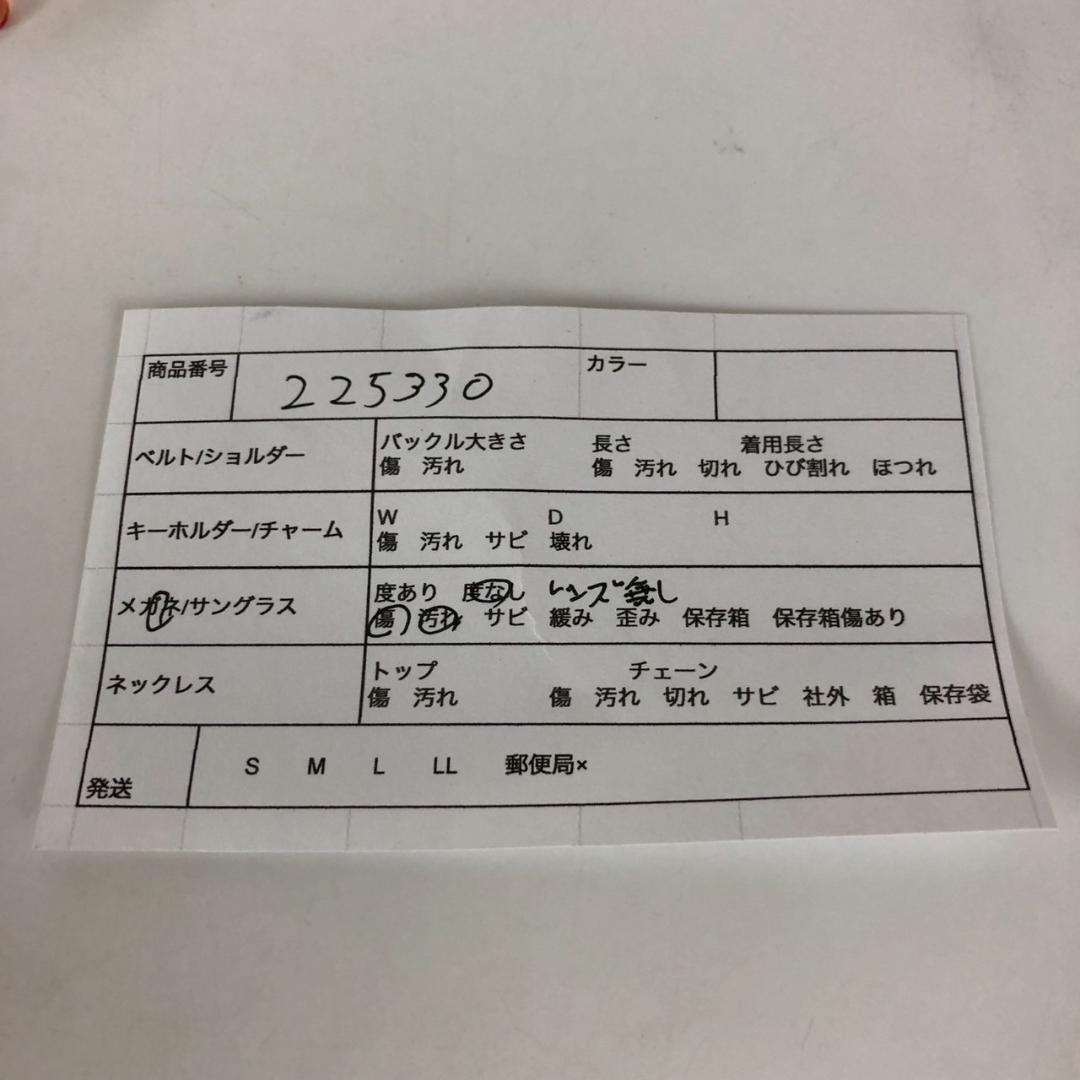 商品番号 225330 カラー
ベルト/ショルダー
バックル大きさ 長さ 着用長さ
傷 汚れ 傷 汚れ 切れ ひび割れ ほつれ
キーホルダー/チャーム
W D H
傷 汚れ サビ 壊れ
メガネ/サングラス
度あり 度なし レンズ無し
傷 汚れ サビ 緩み 歪み 保存箱 保存箱傷あり
ネックレス
トップ チェーン
傷 汚れ 傷 汚れ 切れ サビ 社外 箱 保存袋
発送 S M L LL 郵便局×